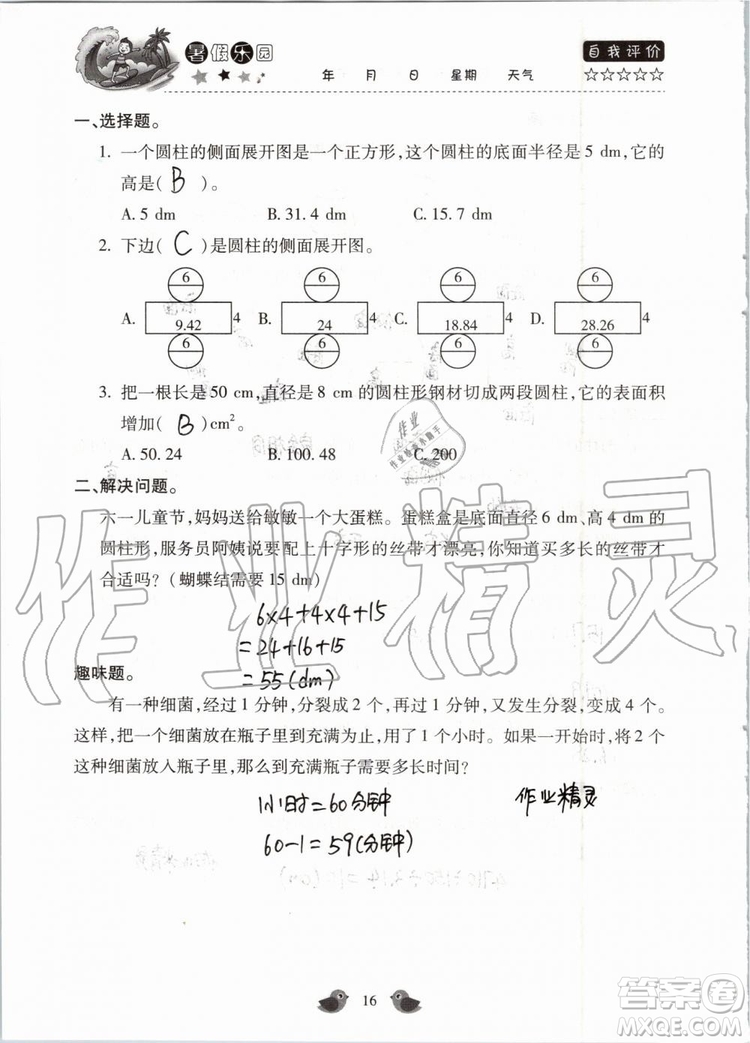 暑假乐园
自我评价
年 月 日 星期 天气 ☆☆☆☆☆
一、选择题。
1. 一个圆柱的侧面展开图是一个正方形,这个圆柱的底面半径是 5 dm,它的
高是( B )。
A. 5 dm B. 31. 4 dm C. 15. 7 dm
2. 下边( C )是圆柱的侧面展开图。
6 6 6 6
A. 9.42 4 B. 24 4 C. 18.84 4 D. 28.26 4
6 6 6 6
3. 把一根长是 50 cm,直径是 8 cm 的圆柱形钢材切成两段圆柱,它的表面积
增加( B )cm²。
A. 50. 24 B. 100. 48 C. 200
二、解决问题。
六一儿童节,妈妈送给敏敏一个大蛋糕。蛋糕盒是底面直径 6 dm、高 4 dm 的
圆柱形,服务员阿姨说要配上十字形的丝带才漂亮,你知道买多长的丝带才
合适吗?(蝴蝶结需要 15 dm)
6×4+4×4+15
=24+16+15
=55(dm)
趣味题。
有一种细菌,经过 1 分钟,分裂成 2 个,再过 1 分钟,又发生分裂,变成 4 个。
这样,把一个细菌放在瓶子里到充满为止,用了 1 个小时。如果一开始时,将 2 个
这种细菌放入瓶子里,那么到充满瓶子需要多长时间?
1小时=60分钟 作业精灵
60-1=59(分钟)
16
作业精灵
答案圈
MXQE.COM